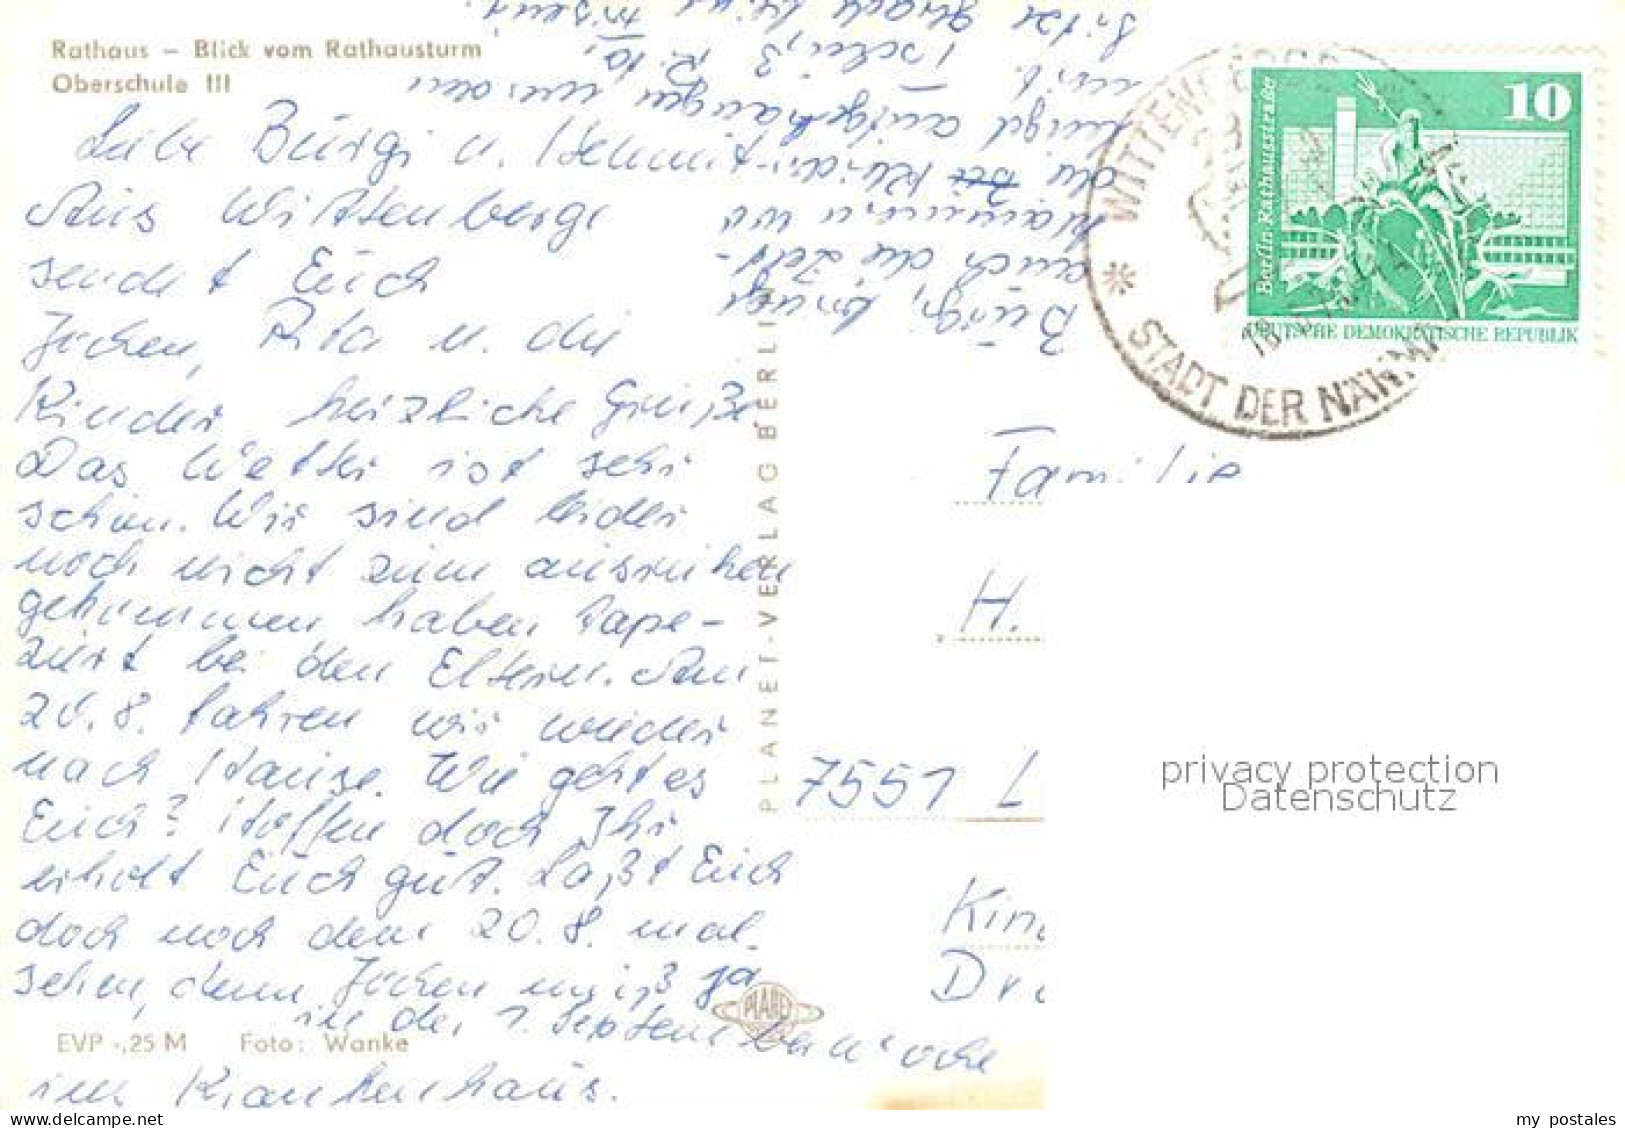 Rathaus – Blick vom Rathausturm
Oberschule III
Liebe Bürgi u. Helmut
Aus Wittenberge
sendet Euch
Jochen, Rita u. die
Kinder herzliche Grüße
Das Wetter ist sehr
schön. Wir sind leider
noch nicht zum ausruhen
gekommen haben Tape-
ziert bei den Eltern. Am
20.8. fahren wir wieder
nach Hause. Wie geht es
Euch? Hoffen doch Ihr
erholt Euch gut. Laßt Euch
doch noch dem 20.8. mal
sehen, denn Jochen muß ja
in der 1. Septemberwoche
ins Krankenhaus.
Bürgi, bringe
auch die Zelt-
klammern wo
die Kleider
aufgehangen wurden
mit.
Tschüß Rita
EVP -,25 M Foto: Wanke
PLANET-VERLAG BERLIN
PLANET
WITTENBERGE
STADT DER NÄHM
10
Berlin-Rathausstraße
DEUTSCHE DEMOKRATISCHE REPUBLIK
Familie
H.
7551 L
Kin
Dr
privacy protection
Datenschutz
my postales